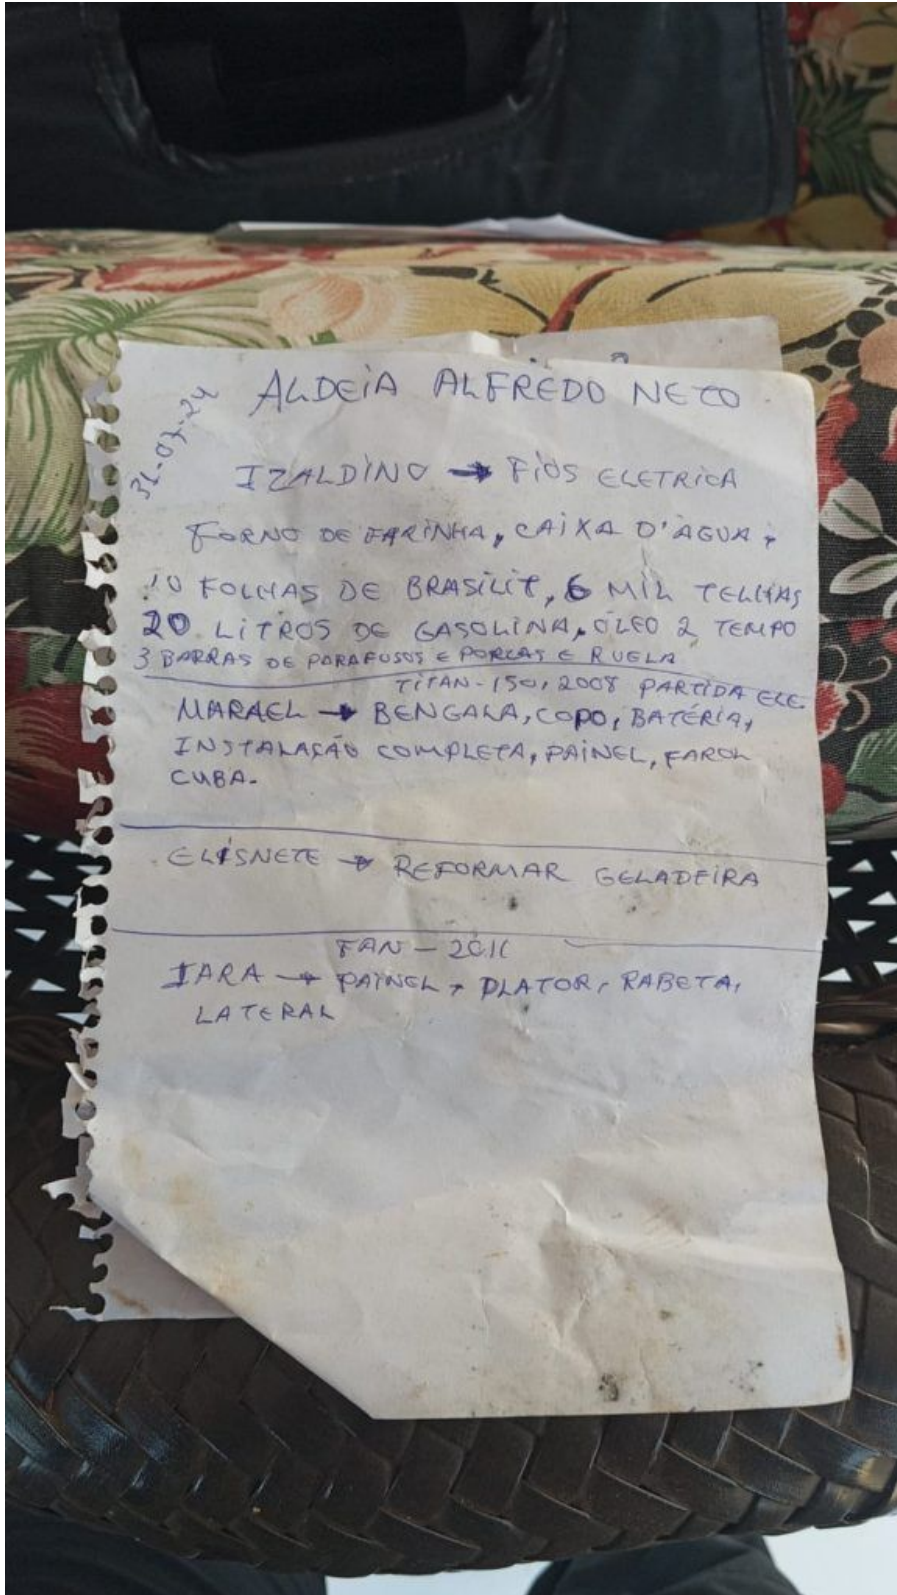 ALDEIA ALFREDO NETO
31-07-24
IZALDINO → FIOS ELETRICA
FORNO DE FARINHA, CAIXA D'AGUA,
10 FOLHAS DE BRASILIT, 6 MIL TELHAS
20 LITROS DE GASOLINA, ÓLEO 2 TEMPO
3 BARRAS DE PARAFUSOS E PORCAS E RUELA
TITAN-150, 2008 PARTIDA ELE.
MARAEL → BENGALA, COPO, BATÉRIA,
INSTALAÇÃO COMPLETA, PAINEL, FAROL
CUBA.
ELISNETE → REFORMAR GELADEIRA
FAN - 2011
IARA → PAINEL, PLATOR, RABETA,
LATERAL